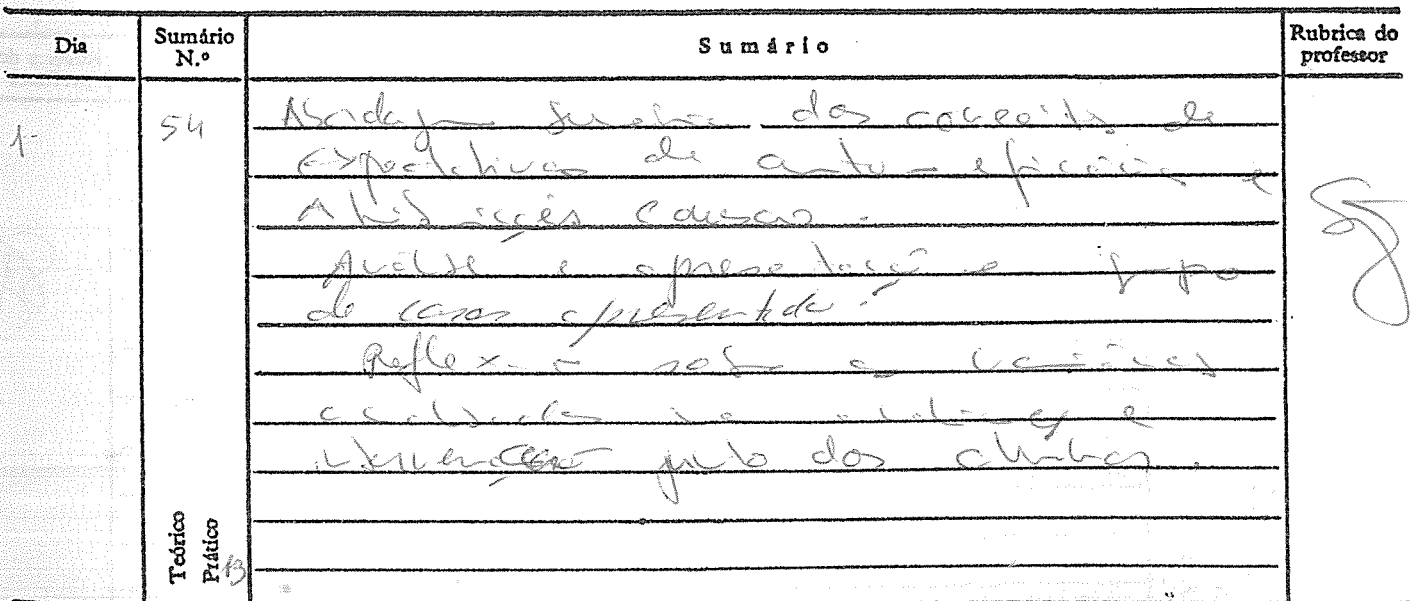 Dia
Sumário N.º
Sumário
Rubrica do professor
1
54
Abordagem dos conceitos de
expectativas de auto-eficácia e
Atribuições causais.
Análise e apresentação grupo
de casos apresentados.
Reflexão sobre as variáveis
e
intervenção junto dos
Teórico
Prático 13